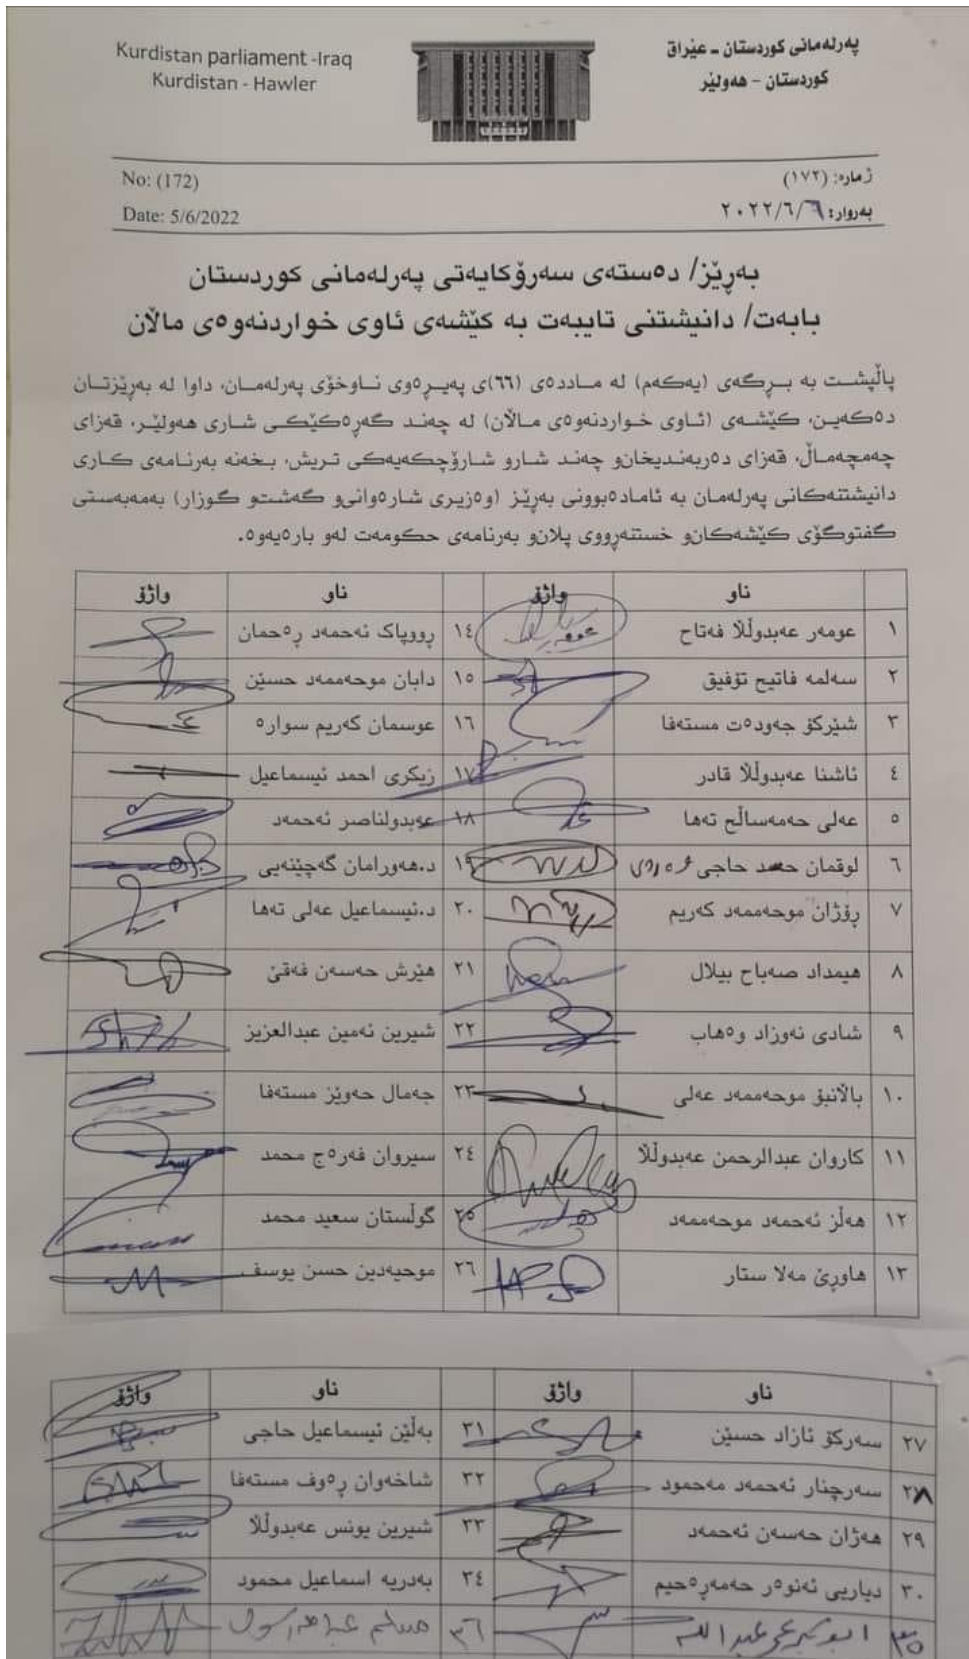 Kurdistan parliament -Iraq
Kurdistan - Hawler
پەرلەمانی کوردستان - عێراق
کوردستان - هەولێر
No: (172)
Date: 5/6/2022
ژمارە: (١٧٢)
بەروار: ٢٠٢٢/٦/٦
بەڕێز/ دەستەی سەرۆکایەتی پەرلەمانی کوردستان
بابەت/ دانیشتنی تایبەت بە کێشەی ئاوی خواردنەوەی ماڵان
پاڵپشت بە بڕگەی (یەکەم) لە ماددەی (٦٦)ی پەیڕەوی ناوخۆی پەرلەمان، داوا لە بەڕێزتان
دەکەین، کێشەی (ئاوی خواردنەوەی ماڵان) لە چەند گەڕەکێکی شاری هەولێر، قەزای
چەمچەماڵ، قەزای دەربەندیخانو چەند شارو شارۆچکەیەکی تریش، بخەنە بەرنامەی کاری
دانیشتنەکانی پەرلەمان بە ئامادەبوونی بەڕێز (وەزیری شارەوانیو گەشتو گوزار) بەمەبەستی
گفتوگۆی کێشەکانو خستنەڕووی پلانو بەرنامەی حکومەت لەو بارەیەوە.
ناو واژۆ ناو واژۆ
١ عومەر عەبدوڵڵا فەتاح ١٤ ڕووپاک ئەحمەد ڕەحمان
٢ سەلمە فاتیح تۆفیق ١٥ دابان موحەممەد حسێن
٣ شێرکۆ جەودەت مستەفا ١٦ عوسمان کەریم سوارە
٤ ئاشنا عەبدوڵڵا قادر ١٧ زیکری احمد ئیسماعیل
٥ عەلی حەمەساڵح تەها ١٨ عوبدولناصر ئەحمەد
٦ لوقمان حمد حاجی ١٩ د.هەورامان گەچێنەیی
٧ ڕۆژان موحەممەد کەریم ٢٠ د.ئیسماعیل عەلی تەها
٨ هیمداد صەباح بیلال ٢١ هێرش حەسەن فەقێ
٩ شادی نەوزاد وەهاب ٢٢ شیرین ئەمین عبدالعزیز
١٠ باڵانبۆ موحەممەد عەلی ٢٣ جەمال حەوێز مستەفا
١١ کاروان عبدالرحمن عەبدوڵڵا ٢٤ سیروان فەرەج محمد
١٢ هەڵز ئەحمەد موحەممەد ٢٥ گوڵستان سعید محمد
١٣ هاوڕێ مەلا ستار ٢٦ موحیەدین حسن یوسف
ناو واژۆ ناو واژۆ
٢٧ سەرکۆ ئازاد حسێن ٣١ بەڵێن ئیسماعیل حاجی
٢٨ سەرچنار ئەحمەد مەحمود ٣٢ شاخەوان ڕەوف مستەفا
٢٩ هەژان حەسەن ئەحمەد ٣٣ شیرین یونس عەبدوڵڵا
٣٠ دیاریی ئەنوەر حەمەڕەحیم ٣٤ بەدریە اسماعیل محمود
٣٥ ابوبكر عمر عبدالله ٣٦ مسلم